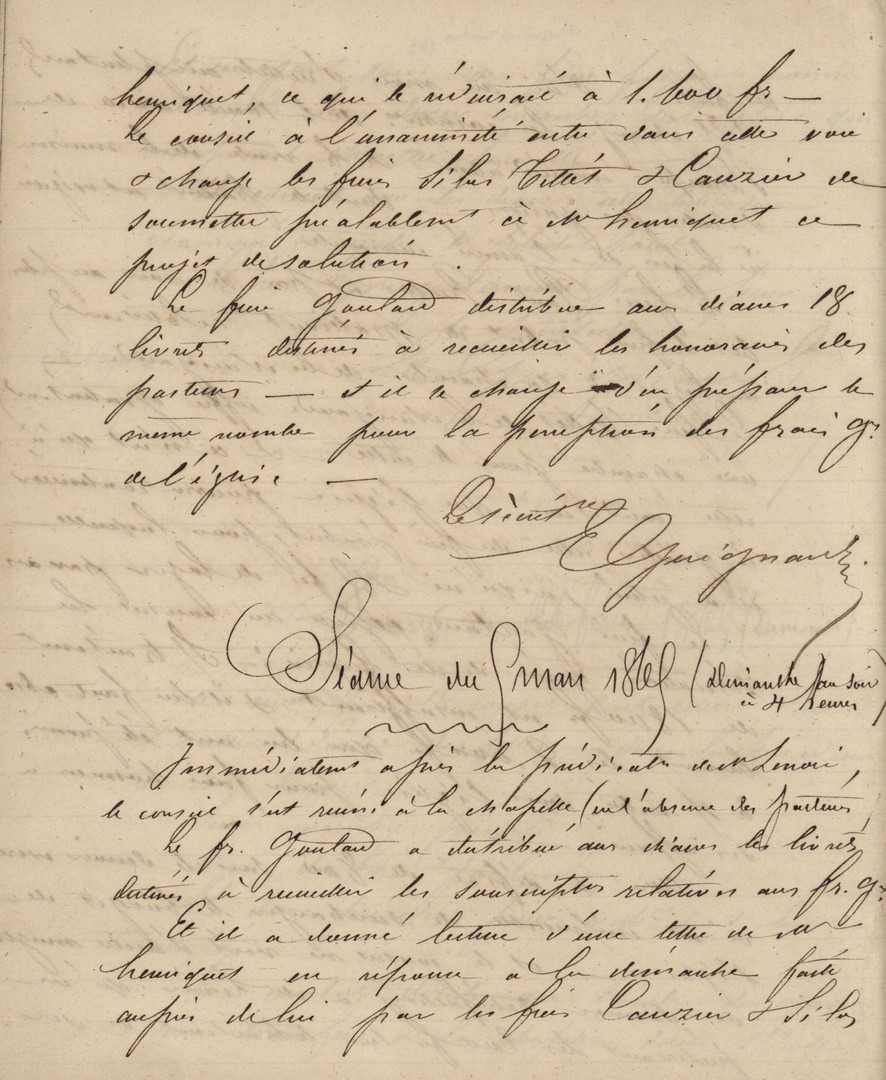 henriquet, ce qui le réduirait à 1.600 fr —
Le conseil à l'unanimité entre dans cette voie
& charge les frères Silas Tettés & Cauzier de
soumettre préalablemt à Mr henriquet ce
projet de solution.
Le frère Goulard distribue aux diacres 18
livrets destinés à recueillir les honoraires des
pasteurs — et il se charge d'en préparer le
même nombre pour la perception des frais gx
de l'église —
Le Secrétre
E Guignard
Séance du 5 mars 1865 (dimanche au soir
à 4 heures)
Immédiatemt après la prédicatn de Mr Lenoir,
le conseil s'est réuni à la chapelle (en l'absence des pasteurs)
Le fr. Goulard a distribué aux diacres les livrets
destinés à recueillir les souscriptns relatives aux fr. gx
Et il a donné lecture d'une lettre de Mr
henriquet en réponse à la démarche faite
auprès de lui par les frères Cauzier & Silas